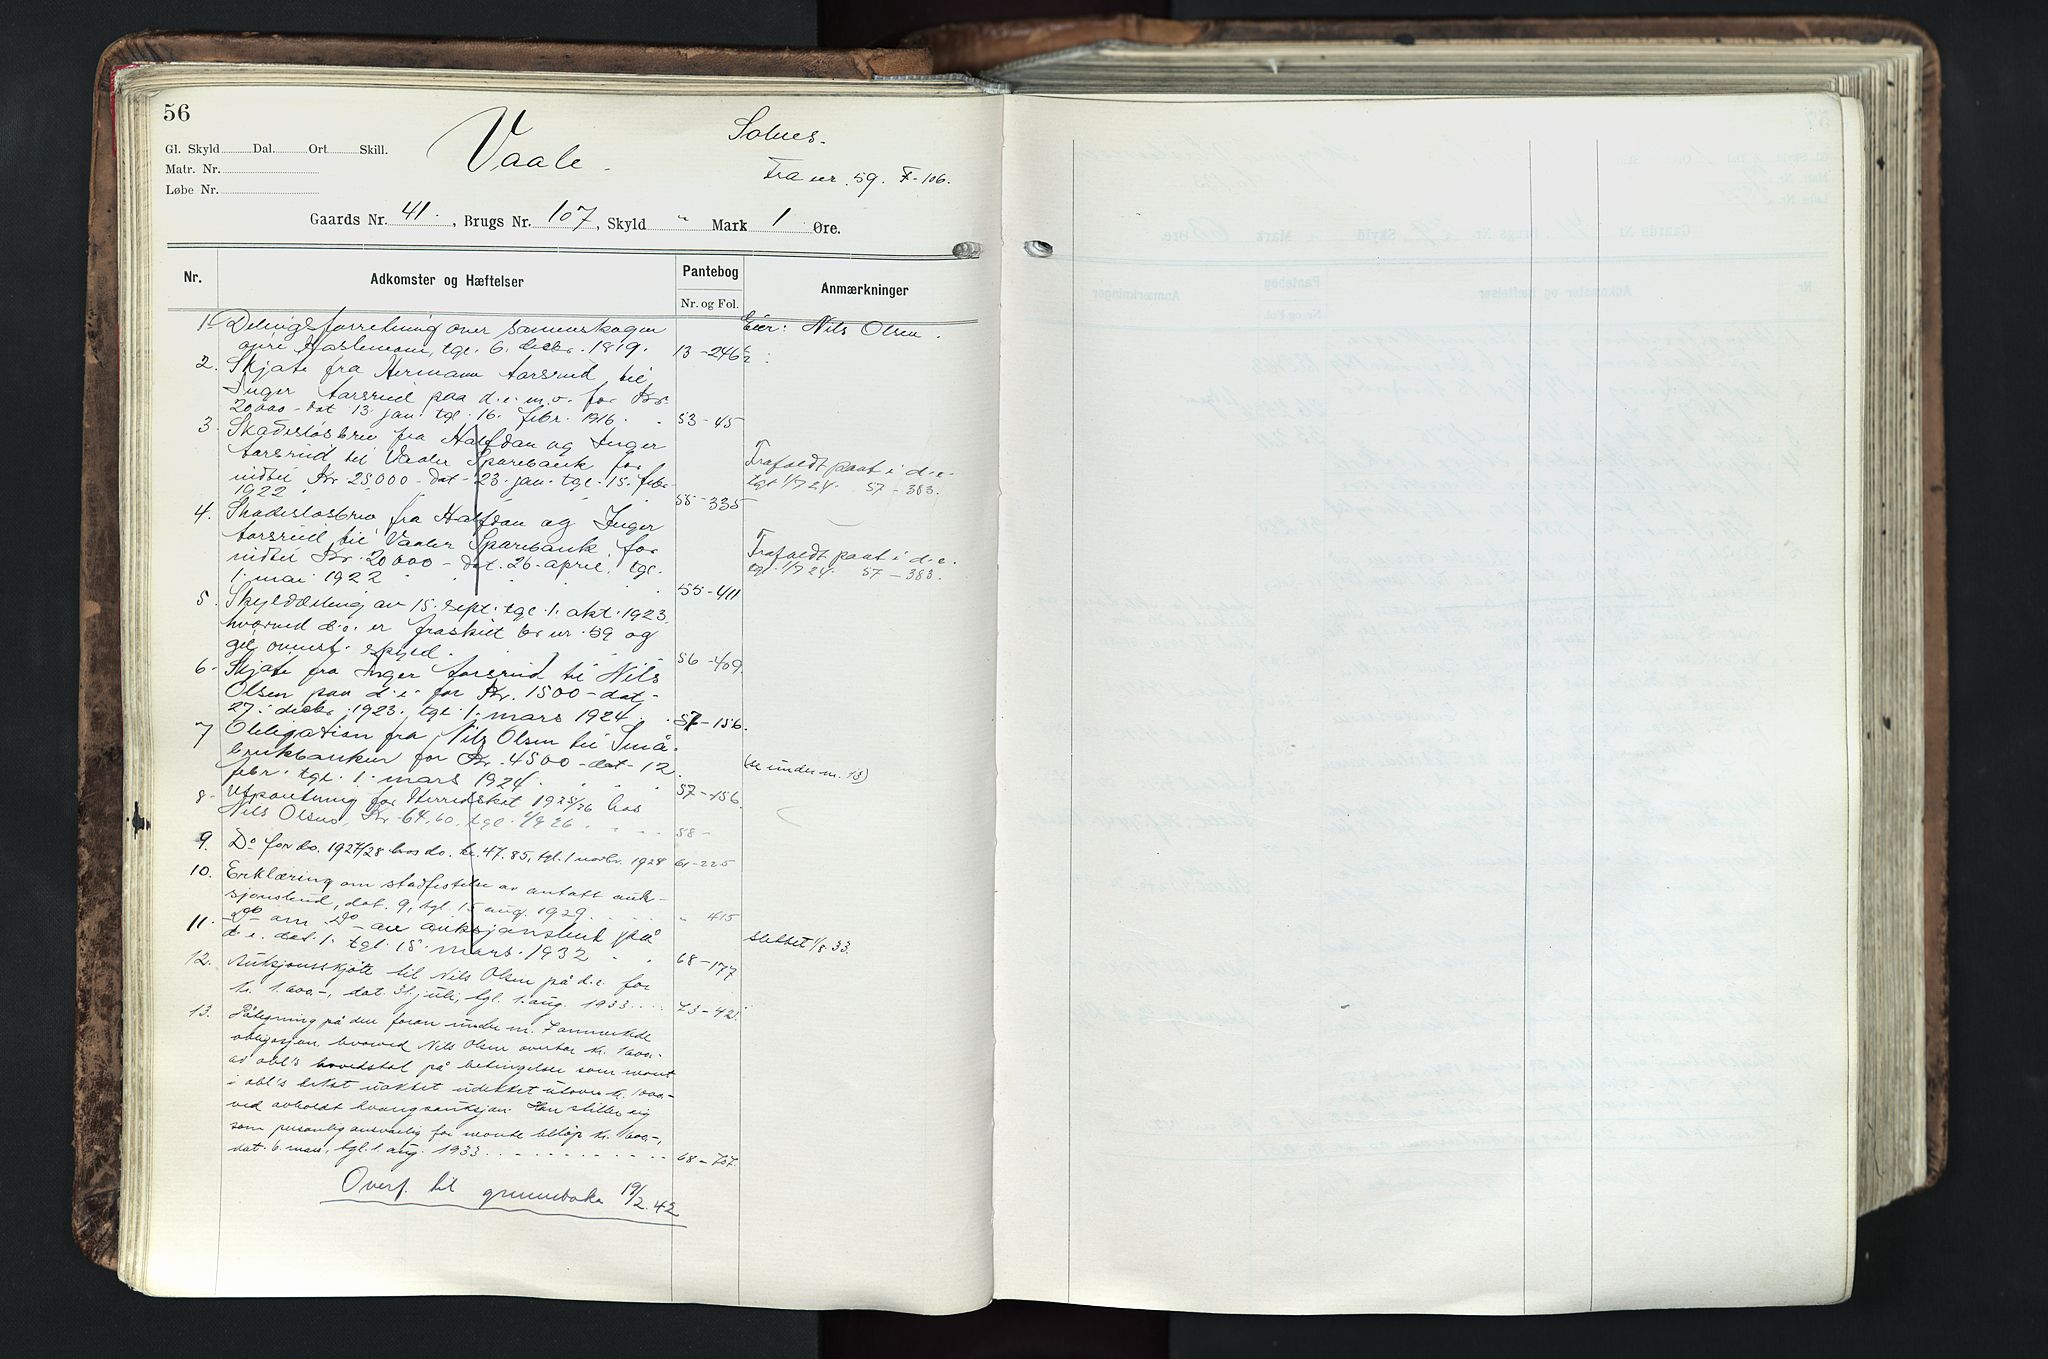 56
Gl. Skyld Dal. Ort Skill.
Matr. Nr.
Løbe Nr.
Vaale.
Solnes.
Fra nr. 59. F-106.
Gaards Nr. 41. , Brugs Nr. 107 , Skyld " Mark 1 Øre.
Nr.
Adkomster og Hæftelser
Pantebog
Nr. og Fol.
Anmærkninger
1. Delingsforretning over sameieskogen
øvre Haslemoen, tgl. 6. decbr. 1819. 13-246 1/2
Eier: Nils Olsen.
2. Skjøte fra Hermann Aarsrud til
Inger Aarsrud paa d.e. m.v. for Kr.
20000 - dat 13. jan. tgl. 16. febr. 1916. 53-45
3. Skadesløsbrev fra Halfdan og Inger
Aarsrud til Vaaler Sparebank for
indtil Kr 25000 - dat. 23. jan. tgl. 15. febr.
1922 55-335
Frafaldt pant i d.e.
tgl 1/7 24. 57-383.
4. Skadesløsbrev fra Halfdan og Inger
Aarsrud til Vaaler Sparebank for
indtil Kr. 20000 - dat. 26. april, tgl.
1. mai 1922 55-411
Frafaldt pant i d.e.
tgl. 1/7 24. 57-383.
5. Skylddeling av 15. sept. tgl. 1. okt. 1923,
hvorved d.e. er fraskilt br nr. 59 og
git ovenst. skyld. 56-409.
6. Skjøte fra Inger Aarsrud til Nils
Olsen paa d.e. for Kr. 1500 - dat.
27. decbr. 1923, tgl. 1. mars 1924. 57-156.
7 Obligation fra Nils Olsen til Små-
brukbanken for Kr. 4500 - dat. 12.
febr. tgl. 1. mars 1924. 57-156.
(se under nr. 13)
8. Utpantning for Herredsskat 1925/26 hos
Nils Olsen, Kr. 64.60. tgl. 1/9 26. 58-
9. Do for do. 1927/28 hos do. kr. 47.85, tgl. 1 novbr. 1928 61-225
10. Erklæring om stadfestelse av antatt auk-
sjonsbud, dat. 9, tgl. 15 aug. 1929. " 415
11. Do om Do av auksjonsbud på
d.e. dat. 1. tgl. 15. mars. 1932 68-177
slettet 1/8 33.
12. Auksjonsskjøte til Nils Olsen på d.e. for
kr. 1.600.-, dat. 31. juli, tgl. 1. aug. 1933. 73-421.
13. Påtegning på den foran under nr. 7 anmerkede
obligasjon hvorved Nils Olsen overtar kr. 1600.-
av obl's hovedstol på betingelse som nevnt
i obl's tekst udekket utover kr. 1600.-
ved avholdt tvangsauksjon. Han stiller sig
som personlig ansvarlig for nevnte beløp kr. 1600.-,
dat. 6. mars, tgl. 1. aug. 1933. 68-707.
Overf. til grunnboka 19/2. 42